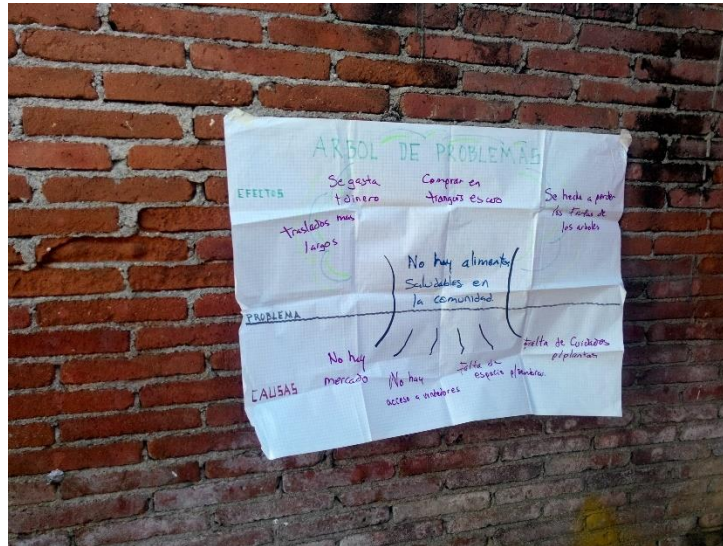 ARBOL DE PROBLEMAS
EFECTOS
Se gasta
+ dinero
Comprar en
tianguis es caro
Se hecha a perder
las frutas de
los arboles
traslados mas
largos
No hay alimentos
Saludables en
la comunidad
PROBLEMA
CAUSAS
No hay
mercado
No hay
acceso a vendedores
Falta de
espacio p/sembrar
Falta de Cuidados
p/plantas